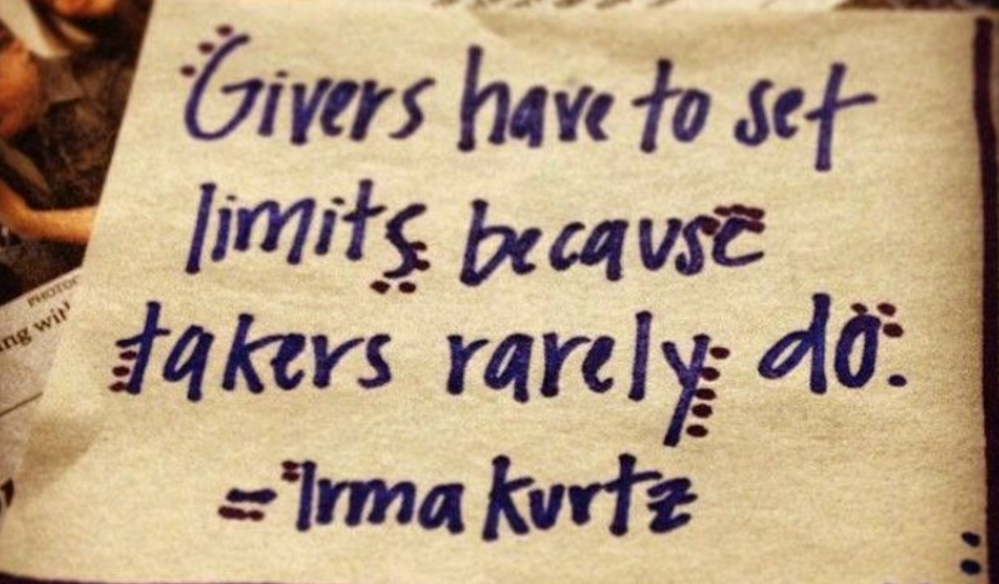 Givers have to set
limits because
takers rarely do.
- Irma Kurtz
ing with